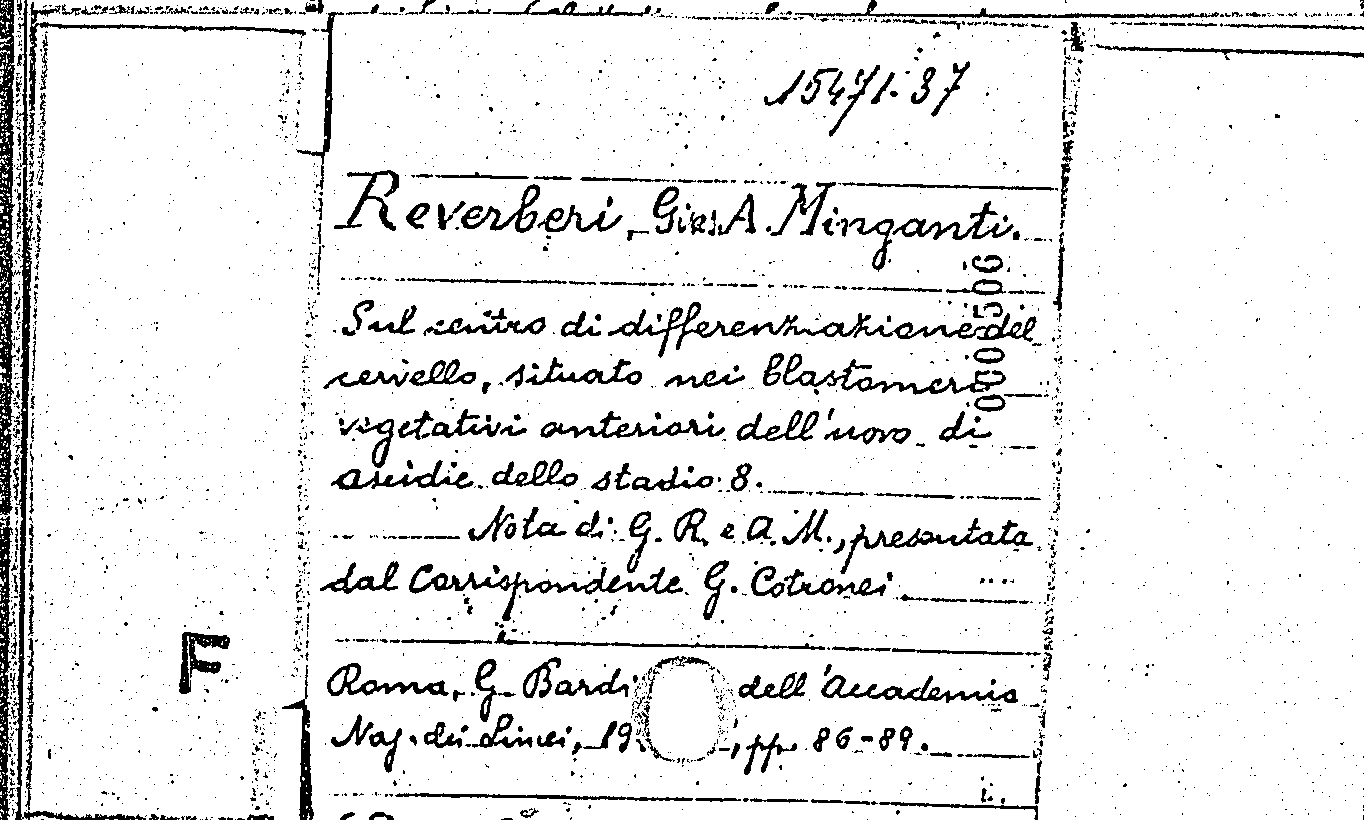 15471.37
Reverberi, G. e A. Minganti.
0000506
Sul centro di differenziazione del
cervello, situato nei blastomeri
vegetativi anteriori dell'uovo di
ascidie dello stadio 8.
Nota di G. R. e A. M., presentata
dal Corrispondente G. Cotronei
F
Roma, G. Bardi dell'Accademia
Naz. dei Lincei, 19 , pp. 86-89.